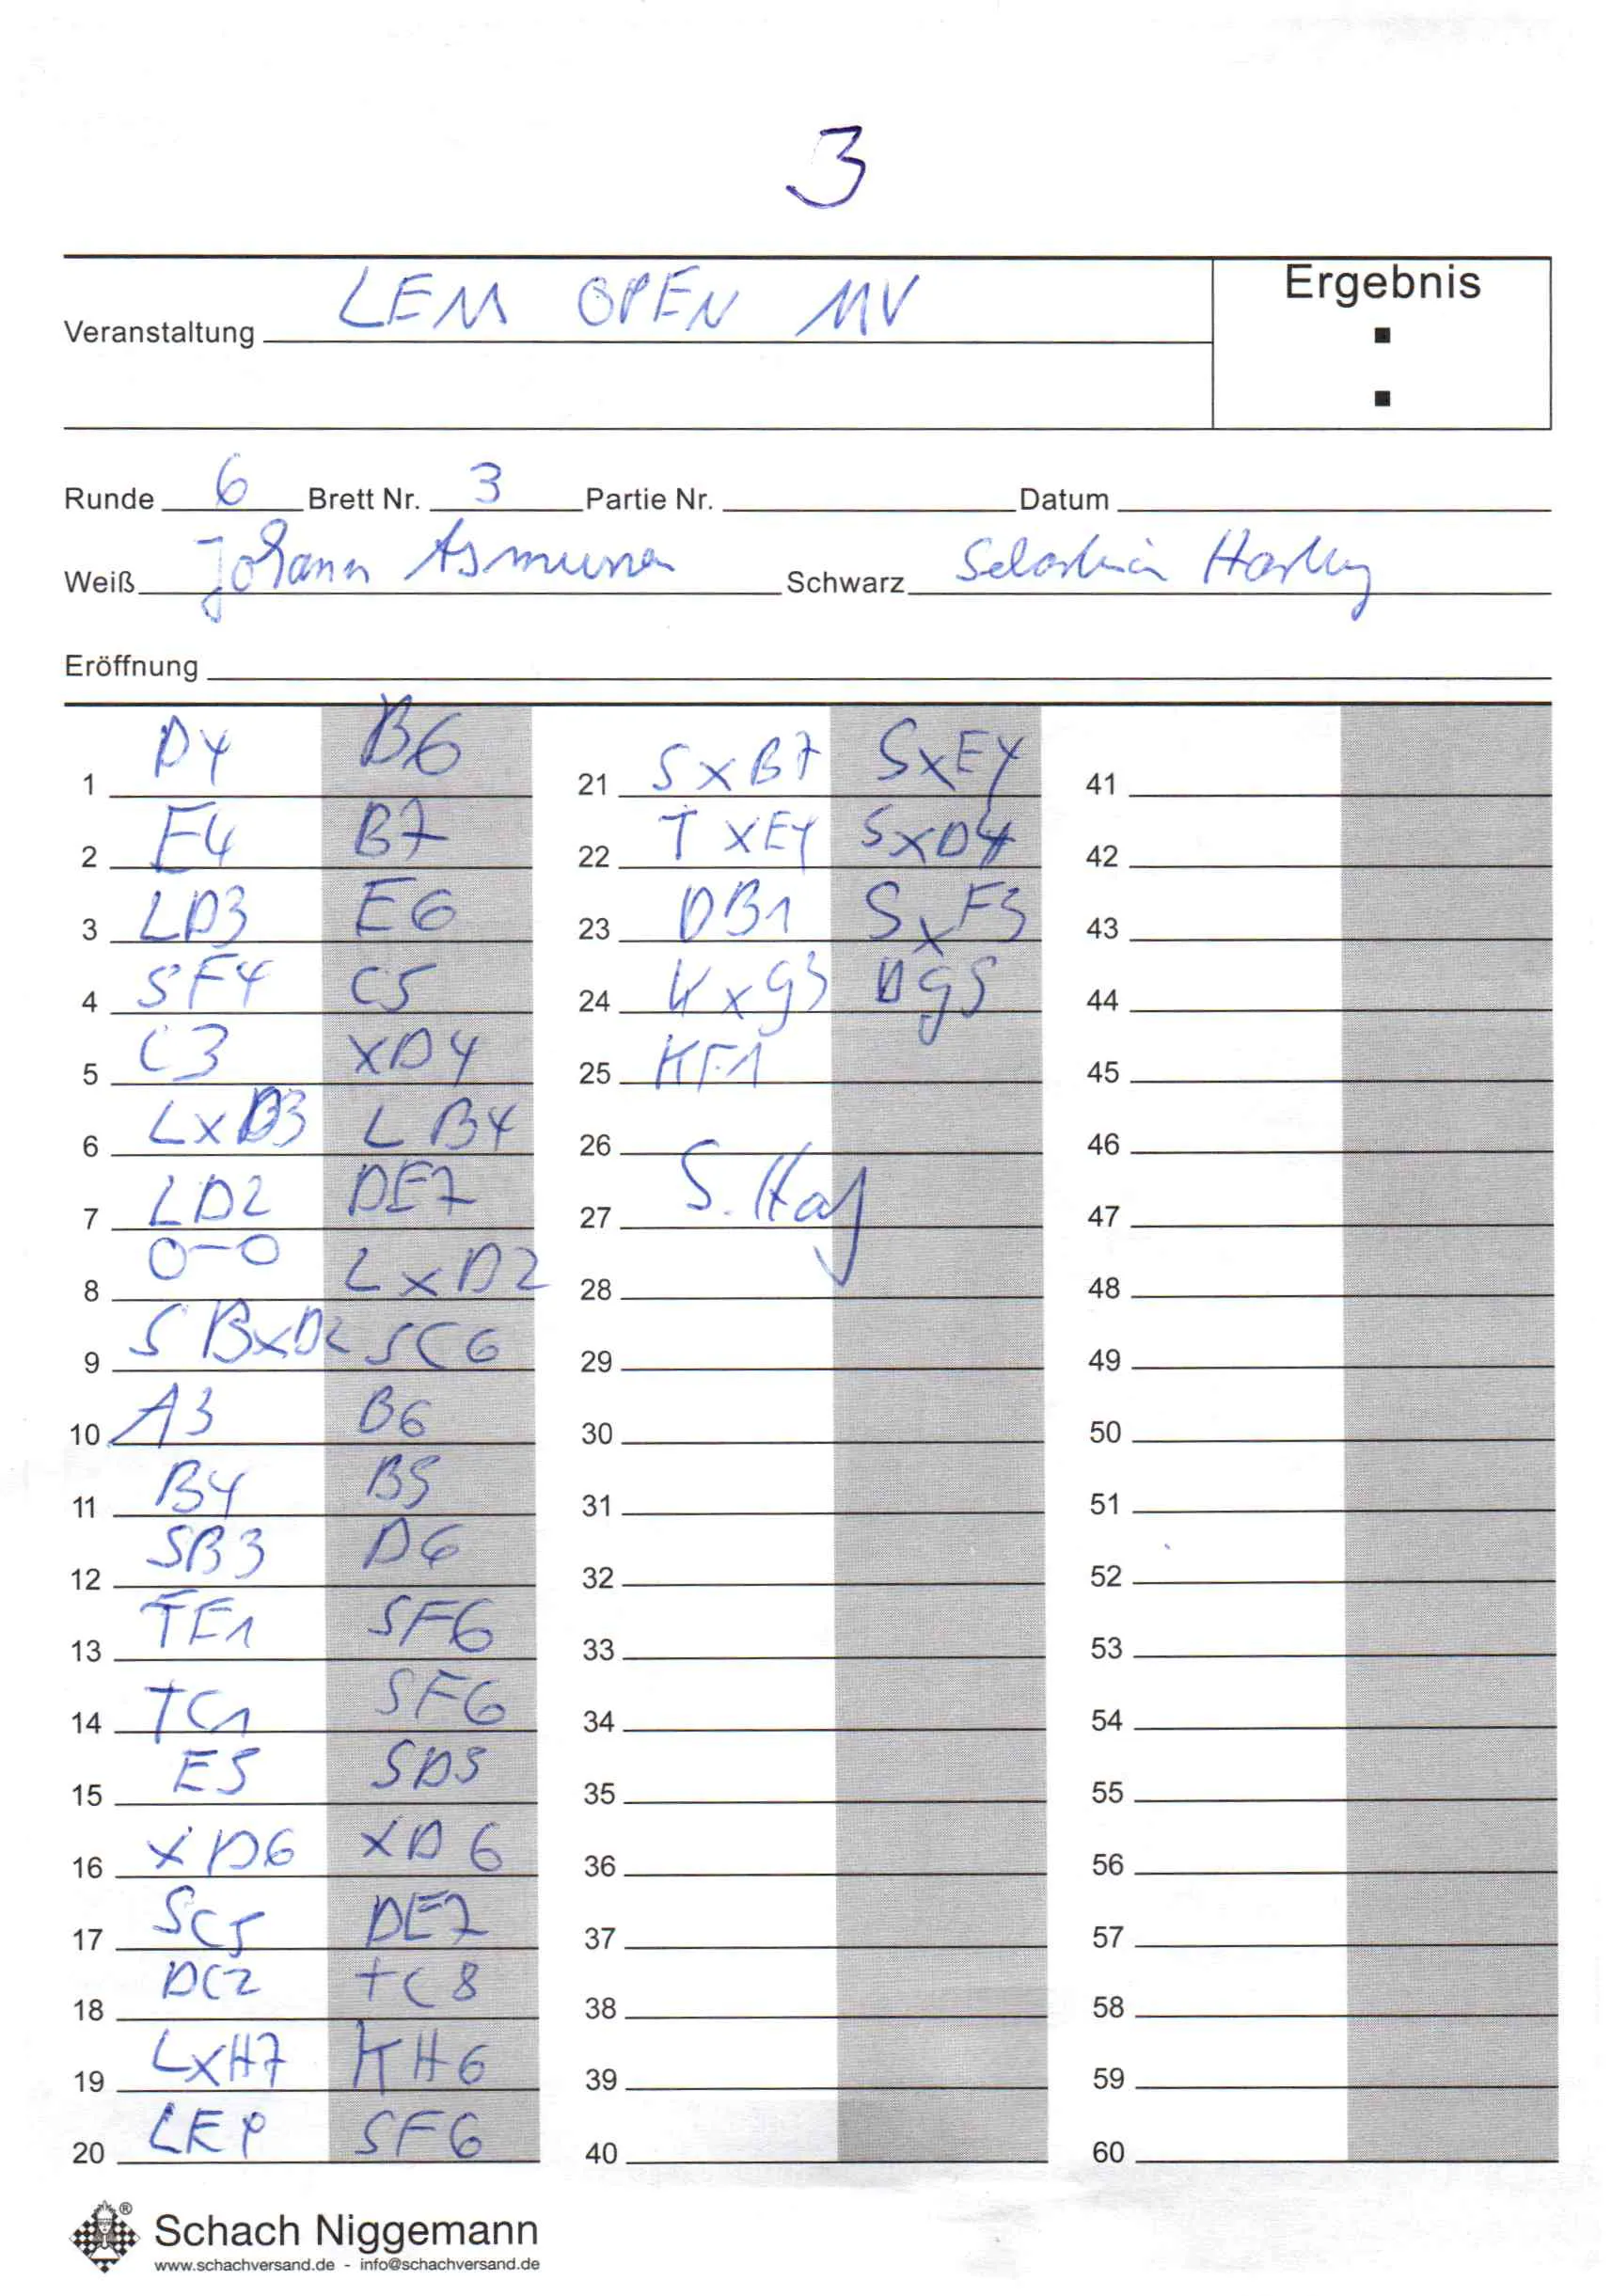 3
LEM OPEN MV
Ergebnis
Veranstaltung
Runde 6 Brett Nr. 3 Partie Nr. Datum
Weiß Johann Schwarz
Eröffnung
1 D4 B6
2 E4 B7
3 LD3 E6
4 SF4 C5
5 C3 XD4
6 LXD3 LB4
7 LD2 DE7
8 0-0 LXD2
9 SBXD2 SC6
10 A3 B6
11 B4 B5
12 SB3 D6
13 TE1 SF6
14 TC1 SF6
15 E5 SD5
16 XD6 XD6
17 SC5 DE7
18 DC2 TC8
19 LXH7 KH6
20 LE4 SF6
21 SXB7 SXE4
22 TXE4 SXD4
23 DB1 SXF3
24 KXg3 Dg5
25 KF1
26
27 S.
28
29
30
31
32
33
34
35
36
37
38
39
40
41
42
43
44
45
46
47
48
49
50
51
52
53
54
55
56
57
58
59
60
Schach Niggemann
www.schachversand.de - info@schachversand.de